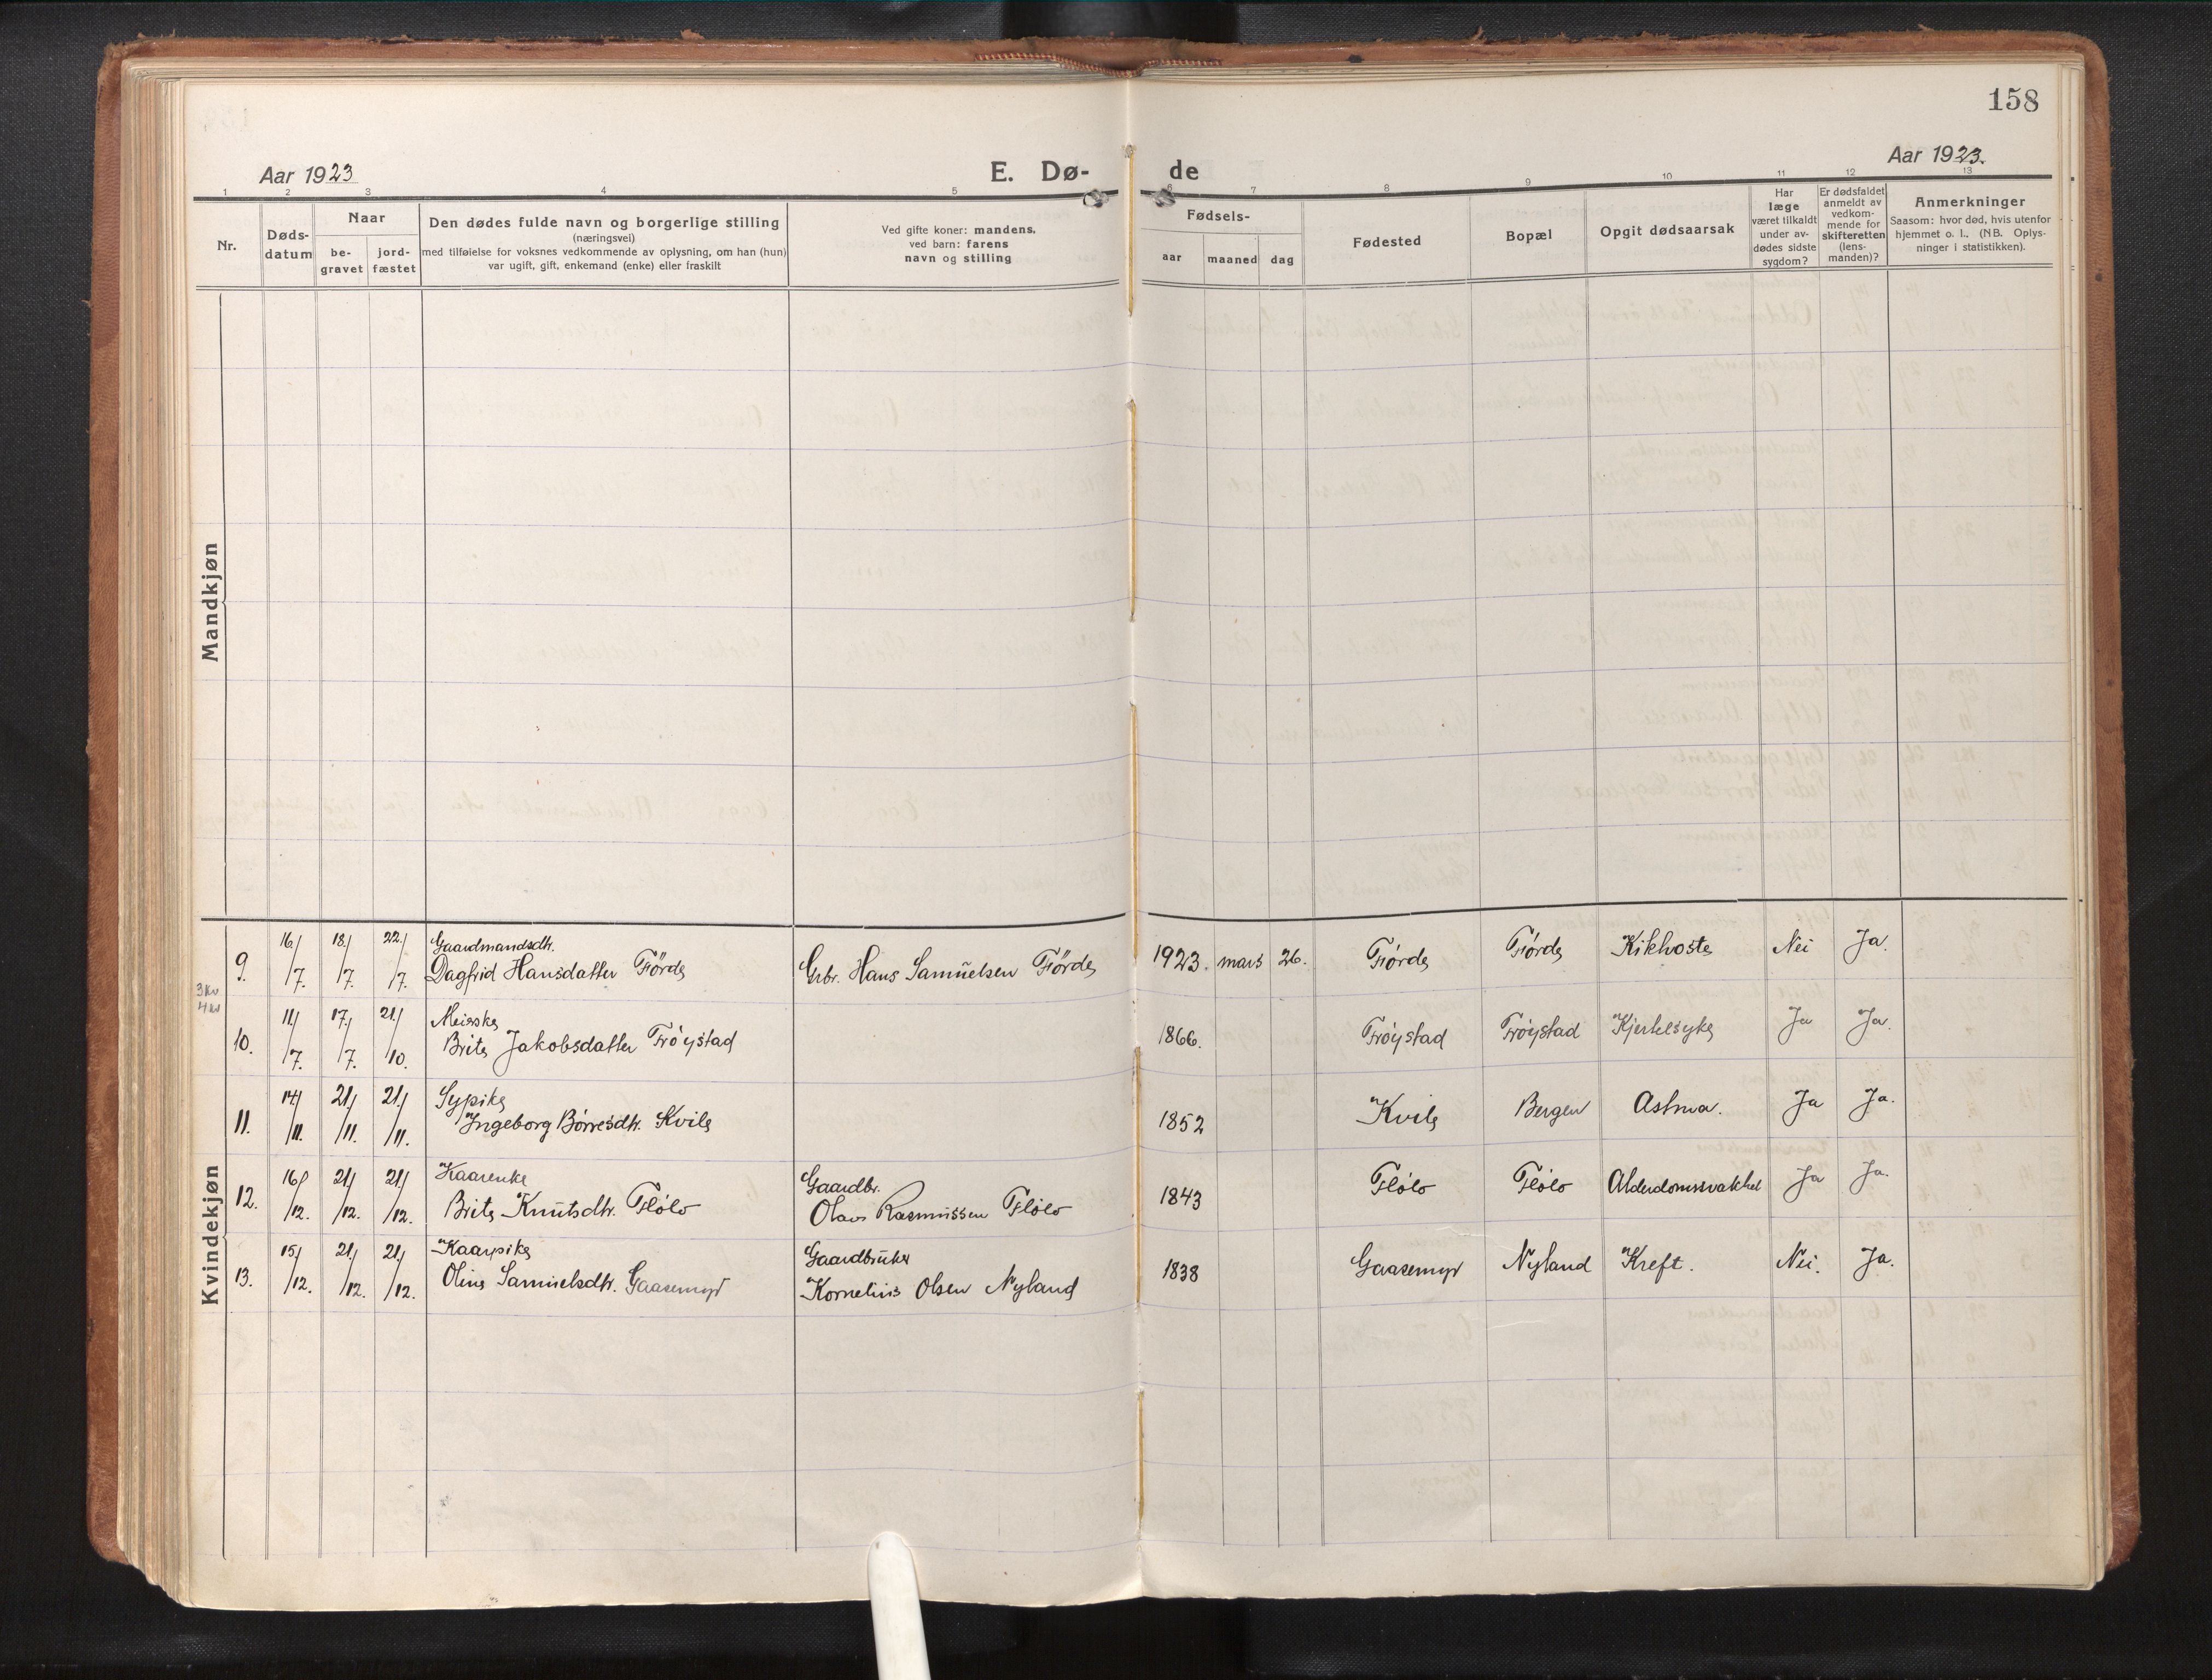 158
Aar 1923
E. Dø-
de
Aar 1923.
1 2 3 4 5 6 7 8 9 10 11 12 13
Nr.
Døds-
datum
Naar
be-
gravet
jord-
fæstet
Den dødes fulde navn og borgerlige stilling
(næringsvei)
med tilføielse for voksnes vedkommende av oplysning, om han (hun)
var ugift, gift, enkemand (enke) eller fraskilt
Ved gifte koner: mandens.
ved barn: farens
navn og stilling
Fødsels-
aar
maaned
dag
Fødested
Bopæl
Opgit dødsaarsak
Har
læge
været tilkaldt
under av-
dødes sidste
sygdom?
Er dødsfaldet
anmeldt av
vedkom-
mende for
skifteretten
(lens-
manden)?
Anmerkninger
Saasom: hvor død, hvis utenfor
hjemmet o. l.. (NB. Oplys-
ninger i statistikken).
Mandkjøn
Kvindekjøn
3 kv
4 kv
9. 16/7. 18/7. 22/7. Gaardmandsdtr.
Dagfrid Hansdatter Førde Gbr. Hans Samuelsen Førde 1923. mars 26. Førde Førde Kikhoste Nei Ja.
10. 11/7. 17/7. 21/10. Meierske
Brite Jakobsdatter Frøystad 1866. Frøystad Frøystad Hjertesyke Ja Ja.
11. 14/11. 21/11. 21/11. Sypike
Ingeborg Børresdtr. Kvile 1852 Kvile Bergen Astma. Ja Ja.
12. 16/12. 21/12. 21/12. Kaarenke Gaardbr.
Brite Knutsdtr. Flølo Olavs Rasmussen Flølo 1843 Flølo Flølo Alderdomssvakhet Ja Ja.
13. 15/12. 21/12. 21/12. Kaarpike Gaardbruker
Oline Samuelsdtr. Gaasemyr Kornelius Olsen Nyland 1838 Gaasemyr Nyland Kreft. Nei. Ja.